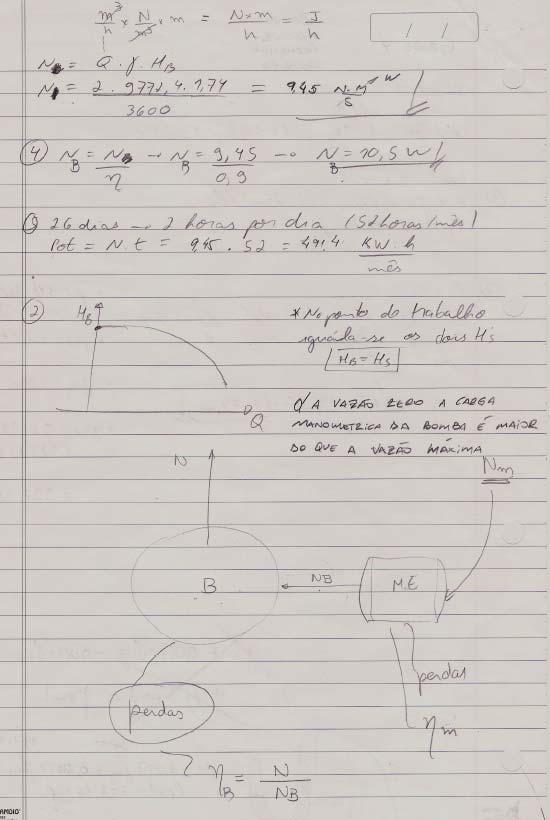 m³/h × N/m³ × m = N×m/h = J/h
/ /
N = Q . γ . H_B
N = 2 . 9772,4 . 1,74 / 3600 = 9,45 N.m/s W
④ N_B = N/η → N_B = 9,45/0,9 → N_B = 10,5 W
26 dias → 2 horas por dia (52 horas/mês)
Pot = N . t = 9,45 . 52 = 491,4 KW.h/mês
② H_B
* No ponto de trabalho
iguala-se os dois H's
H_B = H_S
Q
A VAZÃO ZERO A CARGA
MANOMETRICA DA BOMBA É MAIOR
DO QUE A VAZÃO MÁXIMA
N
Nm
B
NB
M.E
perdas
perdas
ηm
η_B = N/NB